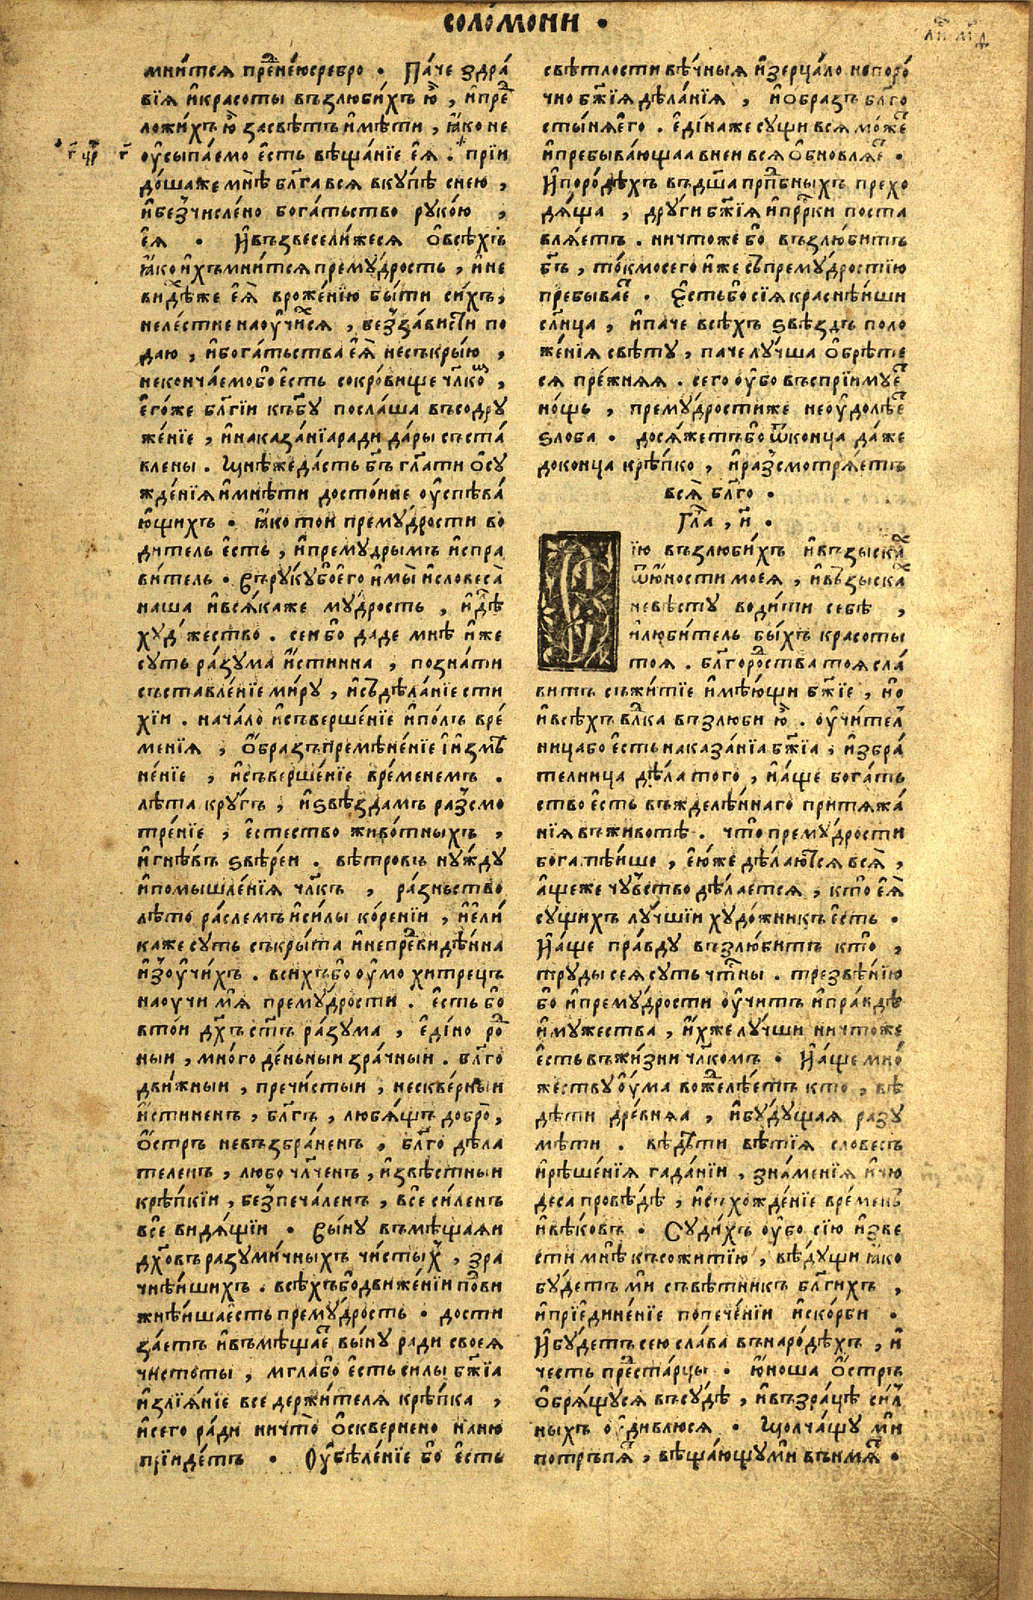 соло́мони •
мни́тся пре́ⷣнеюсребро • Па́че здра́
вїѧ и҆красоты въꙁлюби́хъ ю҆̀ , и҆преⷣ
ложи́хъ ю҆̀ засвѣ́тъ и҆мѣ́ти , ꙗ҆́ко не
ᲂу҆сыпа́емо є҆́сть вѣща́нїе є҆ѧ̀ . прїи
до́шаже мнѣ̀ бл҃га всѧ вку́пѣ снею ,
и҆беꙁчисле́но бога́тьство руко́ю ,
є҆ѧ̀ • И҆въꙁвесели́жесѧ ѻ҆всѣ́хъ
ꙗ҆́ко и҆хъмни́тсѧ прему́дрость , и҆не
ви́дѣⷯже є҆ѧ̀ вроже́нїю бы́ти си́хъ,
неле́стне наᲂучи́ⷯсѧ , беꙁꙁа́висти по
даю̀ , и҆бога́тьства є҆ѧ̀ несъкры́ю ,
некончаемобо̀ є҆́сть сокро́вище чл҃коⷨ ,
є҆го́же бл҃гїи къбг҃у посла́ша въсодру
же́нїе , и҆наказа́нїѧради да́ры съста́
влены . Мнѣ́же да́сть бг҃ъ гл҃ати ѻ҆су
жде́нїѧ и҆мнѣ́ти досто́йне ᲂу҆спѣва́
ю҆щихъ • ꙗ҆́ко той прему́дрости во
ди́тель є҆́сть , и҆прему́дрымъ и҆спра
ви́тель • Въруку́бо є҆го̀ и҆мы̀ и҆словеса̀
наша и҆всѧ́каже му́дрость , и҆дѣ́ⷧ
худо́жество . сей бо̀ даде мнѣ̀ и҆́же
суть ра́зума и҆́стинна , позна́ти
съставле́нїе ми́ру , и҆съдѣ́ланїе сти
хі́и . нача́ло и҆съверше́нїе и҆по́лъ вре́
менїѧ , ѻ҆́бразъпремѣне́нїе і҆и҆змѣ
не́нїе , и҆съверше́нїе вре́менемъ .
лѣ́та кру́гъ , и҆ѕвѣ́здамъ раꙁсмо
тре́нїе , є҆стество живо́тныхъ ,
и҆гнѣ́въ ѕвѣ́рей . вѣ́тровъ ну́жду
и҆помышле́нїѧ чл҃къ , ра́зньство
лѣ́то ра́слемъ и҆си́лы ко́ренїи , и҆є҆ли́
каже суть съкры́та и҆непреⷣви́дѣнна
и҆зᲂучи́хъ . всихъбо̀ ᲂу҆мо хи́трецъ
наᲂучи мѧ̀ прему́дрости . є҆сть бо̀
вто́й дх҃ъ ст҃ъ ра́зума , є҆ди́но роⷣ
ный , мно́го де́ньный зра́чный . бл҃го
дви́жный , пречи́стый , нескве́рный
и҆́стиненъ , бл҃гъ , любѧ́щъ добро̀,
ѻ҆́стръ невъзбра́ненъ , бл҃го дѣ́ла
теленъ , любо чл҃ченъ , и҆звѣ́стный
крѣ́пкїй , безпеча́ленъ , все си́ленъ
все ви́дѧщїй • Выну въмѣща́ѧй
дх҃овъ разуми́чныхъ чи́стыхъ , зра
чнѣ́йшихъ . всѣ́хъбо движе́нїй по́ви
жнѣ́йшаєсть прему́дрость . дости
за́етъ и҆въмѣща́еⷮ вы́ну ради своеѧ
чистоты̀ , мглабо̀ є҆сть си́лы бж҃їа
и҆злїѧ́нїе все держи́телѧ крѣ́пка ,
и҆сего ра́ди ничто̀ ѻ҆скверне́но на́ню
прїиде́тъ • Оу҆бѣле́нїе бо̀ є҆сть
свѣ́тлости вѣ́чныѧ и҆зерца́ло непоро́
чно бж҃їѧ дѣ́ланїѧ , и҆ѻ҆бразъ бл҃го
сты́ни є҆го̀ . є҆ди́наже сущи всѧ мо́жеⷮ
и҆пребыва́ющаа вней всѧ ѻ҆бновлѧ́еⷮ •
И҆поро́дѣхъ въдш҃а прпⷣбныхъ прехо
дѧ́ща , дру́ги бж҃їѧ и҆прⷪ҇ки поста
влѧ́етъ . ничтоже бо̀ възлю́битъ
бг҃ъ , то́кмосего и҆́же съпрему́дростїю
пребыва́еⷮ . Є҆стьбо̀ сїѧ краснѣ́йши
сл҃нца , и҆паче всѣ́хъ ѕвѣ́здъ поло
же́нїѧ свѣ́ту , паче лу́чша ѻ҆брѣ́те
сѧ пре́жнѧѧ . сего ᲂу҆бо въспрїи́муеⷮ
но́щь , прему́дростиже неᲂудолѣ́еⷮ
ѕлоба • досѧ́жетъбо̀ ѿконца да́же
доконца крѣ́пко , и҆разсмотрѧ́етъ
всѧ̀ бл҃го •
Гл҃а , и҃ •
їю възлюби́хъ и҆възыска́ⷯ
ѿю҆́ности моеѧ , и҆възыска́ⷯ
невѣ́сту води́ти себѣ̀ ,
и҆люби́тель бы́хъ красоты
тоѧ . бл҃горо́ⷣства тоѧ сла́
витъ съжи́тїе и҆мѣ́ющи бж҃їе , но
и҆всѣ́хъ влⷣка въꙁлюби ю҆̀ . ᲂу҆чи́телⷽ
ницабо є҆сть наказа́нїа бж҃їа , и҆збра́
телница дѣ́ла того , и҆а҆ще бога́ть
ство є҆́сть въжделѣ́ннаго притѧжа́
нїѧ въживотѣ̀ . что̀ прему́дрости
бога.тѣ́йшо , є҆ю҆же дѣ́лаютсѧ всѧ̀ ,
а҆щеже чу́вство дѣ́лается , кто̀ є҆ѧ̀
сущихъ лу́чшїй худо́жникъ є҆сть •
И҆а҆ще пра́вду възлю́битъ кто̀ ,
труды сеѧ суть чтⷭ҇ны . трезвѣ́нїю
бо̀ и҆прему́дрости ᲂу҆чи́тъ и҆пра́вдѣ
и҆му́жества , и҆хже лу́чши ничтоже
є҆сть въжи́зни чл҃комъ • И҆а҆ще мно́
жеству̀ ᲂу҆ма вожⷣелѣ́етъ кто , вѣ
дѣти дре́внѧа , и҆бу́дущаѧ разу
мѣти . вѣ́дѣти вѣ́тїѧ слове́съ
и҆рѣше́нїѧ гада́нїй , зна́менїѧ и҆чю
деса провѣ́дѣ , и҆схожде́нїе вре́менъ
и҆вѣ́ковъ • Суди́хъ ᲂу҆бо сїю и҆зве
сти мнѣ̀ късожи́тїю , вѣ́дущи ꙗ҆́ко
бу́детъ мѝ съвѣ́тникъ бл҃ги́хъ ,
и҆прїедине́нїе попече́нїй и҆ско́рби •
И҆бу́детъ сею сла́ва вънаро́дѣхъ , и҆
че́сть преⷣста́рцы • ю҆ноша ѻ҆́стръ
ѻ҆брѧ́щусѧ въсу́дѣ , и҆въꙁра́цѣ си́лⷽ
ныхъ ᲂу҆дивлю́сѧ • Молча́щу мѝ
потръпѧ́ⷮ , вѣща́ющуми въни́мѧⷮ •